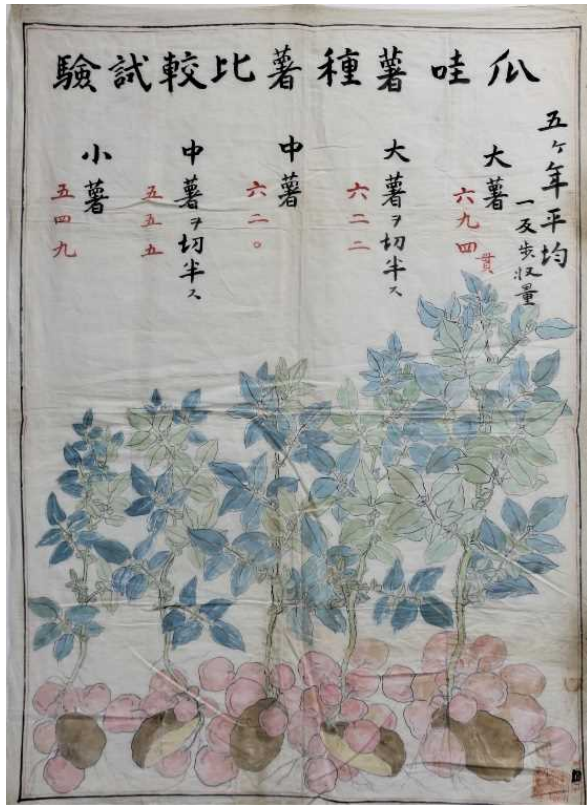 瓜哇薯種薯比較試驗
五ヶ年平均
一反歩収量
大薯
六九四貫
大薯ヲ切半ス
六二二
中薯
六二〇
中薯ヲ切半ス
五五五
小薯
五四九